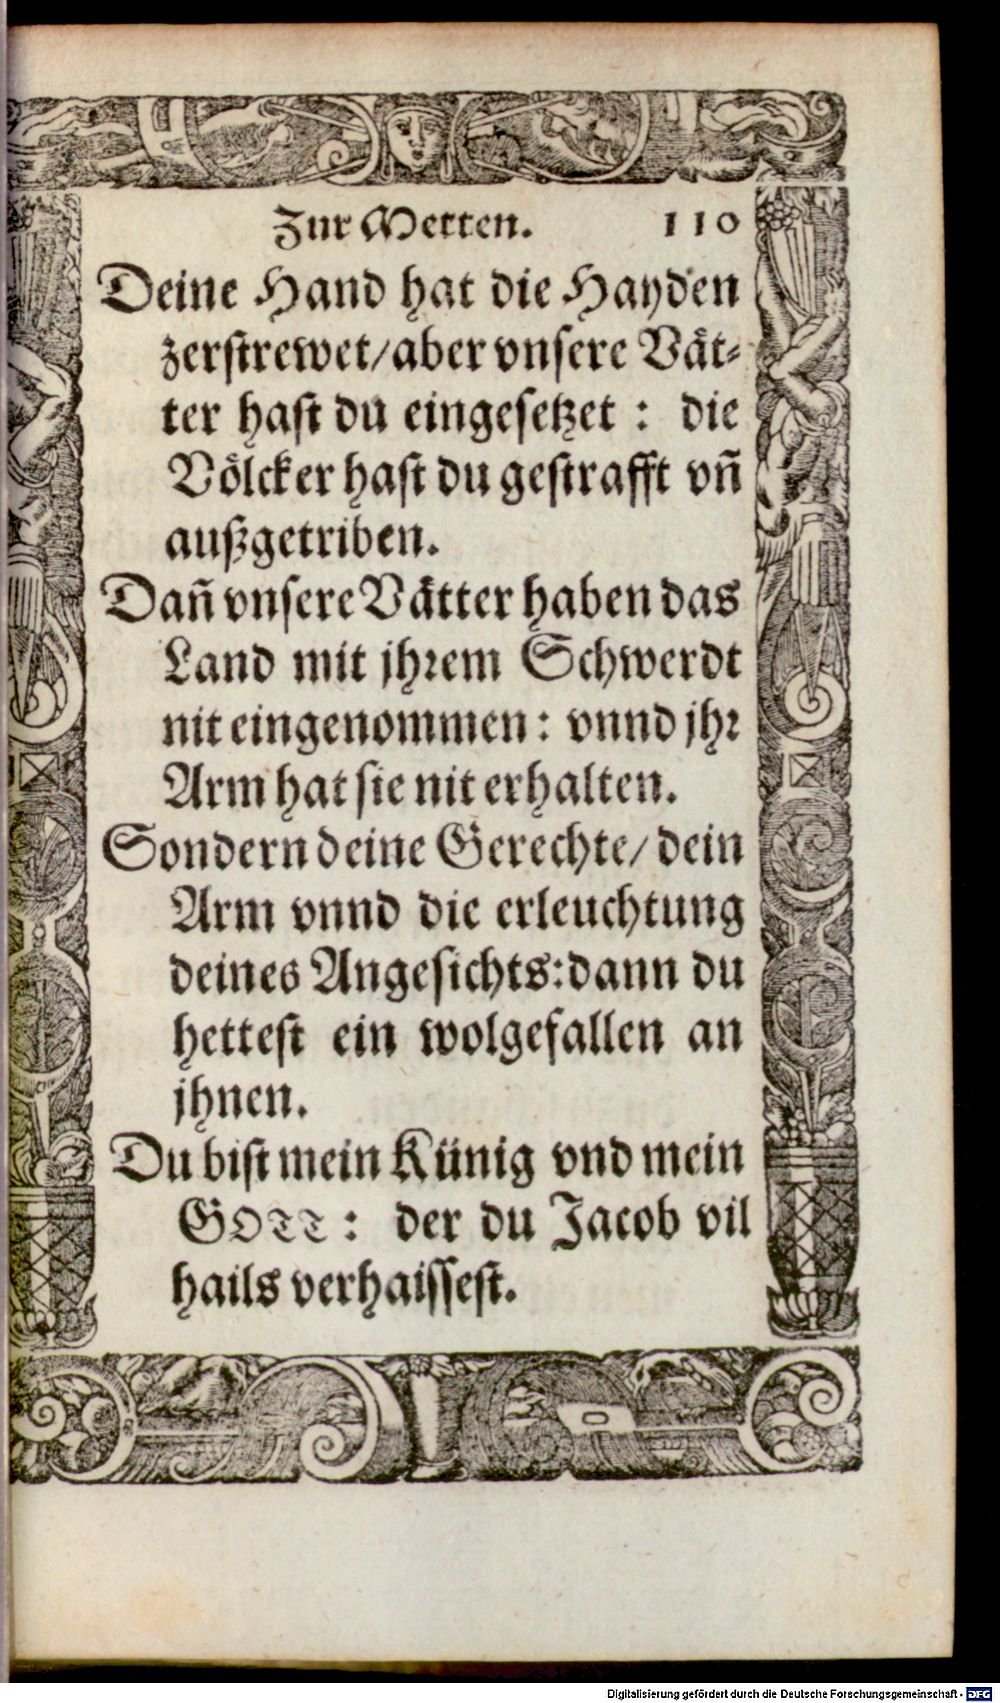 Zur Metten. 110
Deine Hand hat die Hayden
zerstrewet/aber vnsere Vät⸗
ter hast du eingesetzet : die
Völcker hast du gestrafft vñ
außgetriben.
Dañ vnsere Vätter haben das
Land mit jhrem Schwerdt
nit eingenommen : vnnd jhr
Arm hat sie nit erhalten.
Sondern deine Gerechte/ dein
Arm vnnd die erleuchtung
deines Angesichts: dann du
hettest ein wolgefallen an
jhnen.
Du bist mein Künig vnd mein
GOTT : der du Jacob vil
hails verhaissest.
Digitalisierung gefördert durch die Deutsche Forschungsgemeinschaft - DFG